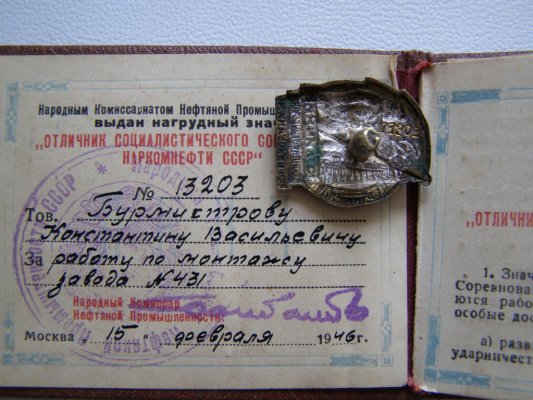 Народным Комиссариатом Нефтяной Промыш
выдан нагрудный зна
„ОТЛИЧНИК СОЦИАЛИСТИЧЕСКОГО СО
НАРКОМНЕФТИ СССР"
№ 13203
Тов. Бурмистрову
Константину Васильевичу
За работу по монтажу
завода №431
Народный Комиссар
Нефтяной Промышленности:
Москва „ 15 " февраля 1946г.
13203
„ОТЛИЧН
1. Знач
Соревнова
ются рабо
особые дос
а) разв
ударничест